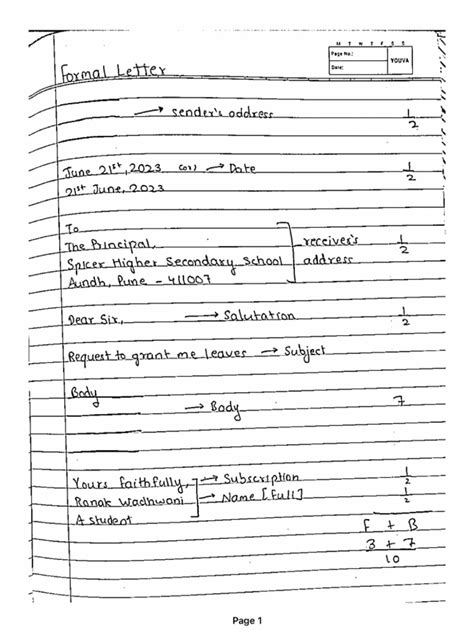 M T W T F S S
Page No.:
YOUVA
Date:
Formal Letter
→ sender's address 1/2
June 21st, 2023 (or) → Date 1/2
21st June, 2023
To
The Principal, receiver's 1/2
Spicer Higher Secondary School address
Aundh, Pune - 411007
Dear Sir, → Salutation 1/2
Request to grant me leaves → Subject
Body
→ Body 7
Yours faithfully, → Subscription 1/2
Ranak Wadhwani → Name [full] 1/2
A student
F + B
3 + 7
10
Page 1